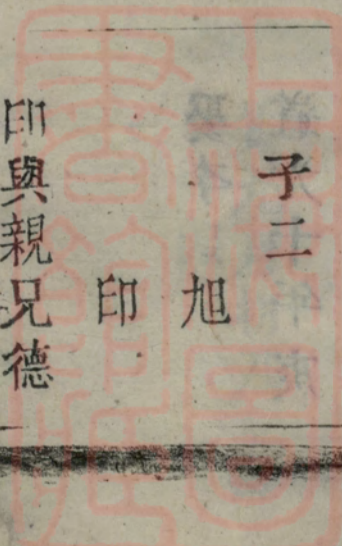 子二
旭
印
印與親兄德